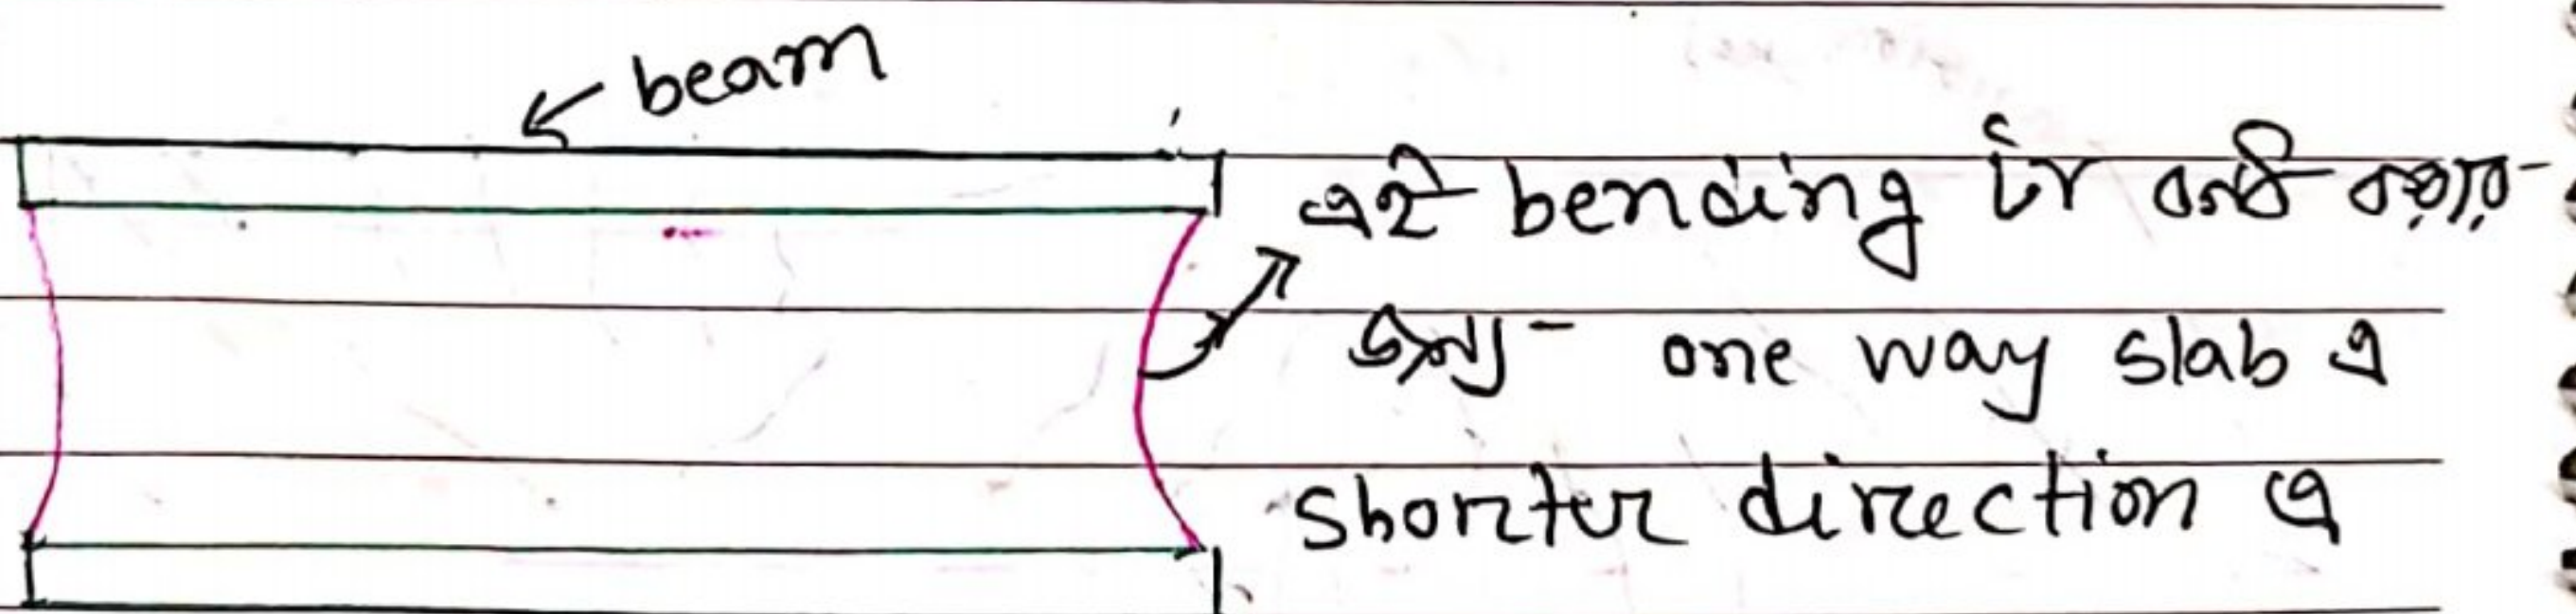 beam
এই bending টা বন্ধ করার
জন্য one way slab এ
shorter direction এ